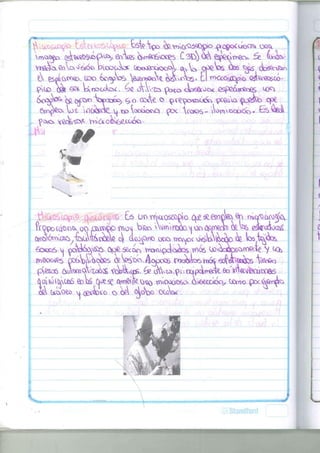 Microscopio Estereoscópico: Este tipo de microscopio proporciona una
imagen estereoscópica, en tres dimensiones (3D) del espécimen. Se funda-
menta en la visión binocular convencional, en la que los dos ojos observan
el espécimen con ángulos levemente distintos. El microscopio estereoscó-
pico debe ser binocular. Se utiliza para observar especímenes con
ángulos de gran tamaño, sin corte o preparación previa puesto que
emplea luz incidente y no funciona por trans-iluminación. Es ideal
para realizar microdisección.
Microscopio quirúrgico: Es un microscopio que se emplea en microcirugía.
Proporciona un campo muy bien iluminado y un aumento de las estructuras
anatómicas, facilitándole al cirujano una mayor visibilidad de los tejidos
sanos y patológicos que serán manipulados más cuidadosamente y con
menores posibilidades de lesión. Algunos modelos más sofisticados tienen
piezas automatizadas robóticas. Se utiliza principalmente en intervenciones
quirúrgicas en las que se amerite una minuciosa disección, como por ejemplo
del cráneo y cerebro o del globo ocular.
Standford